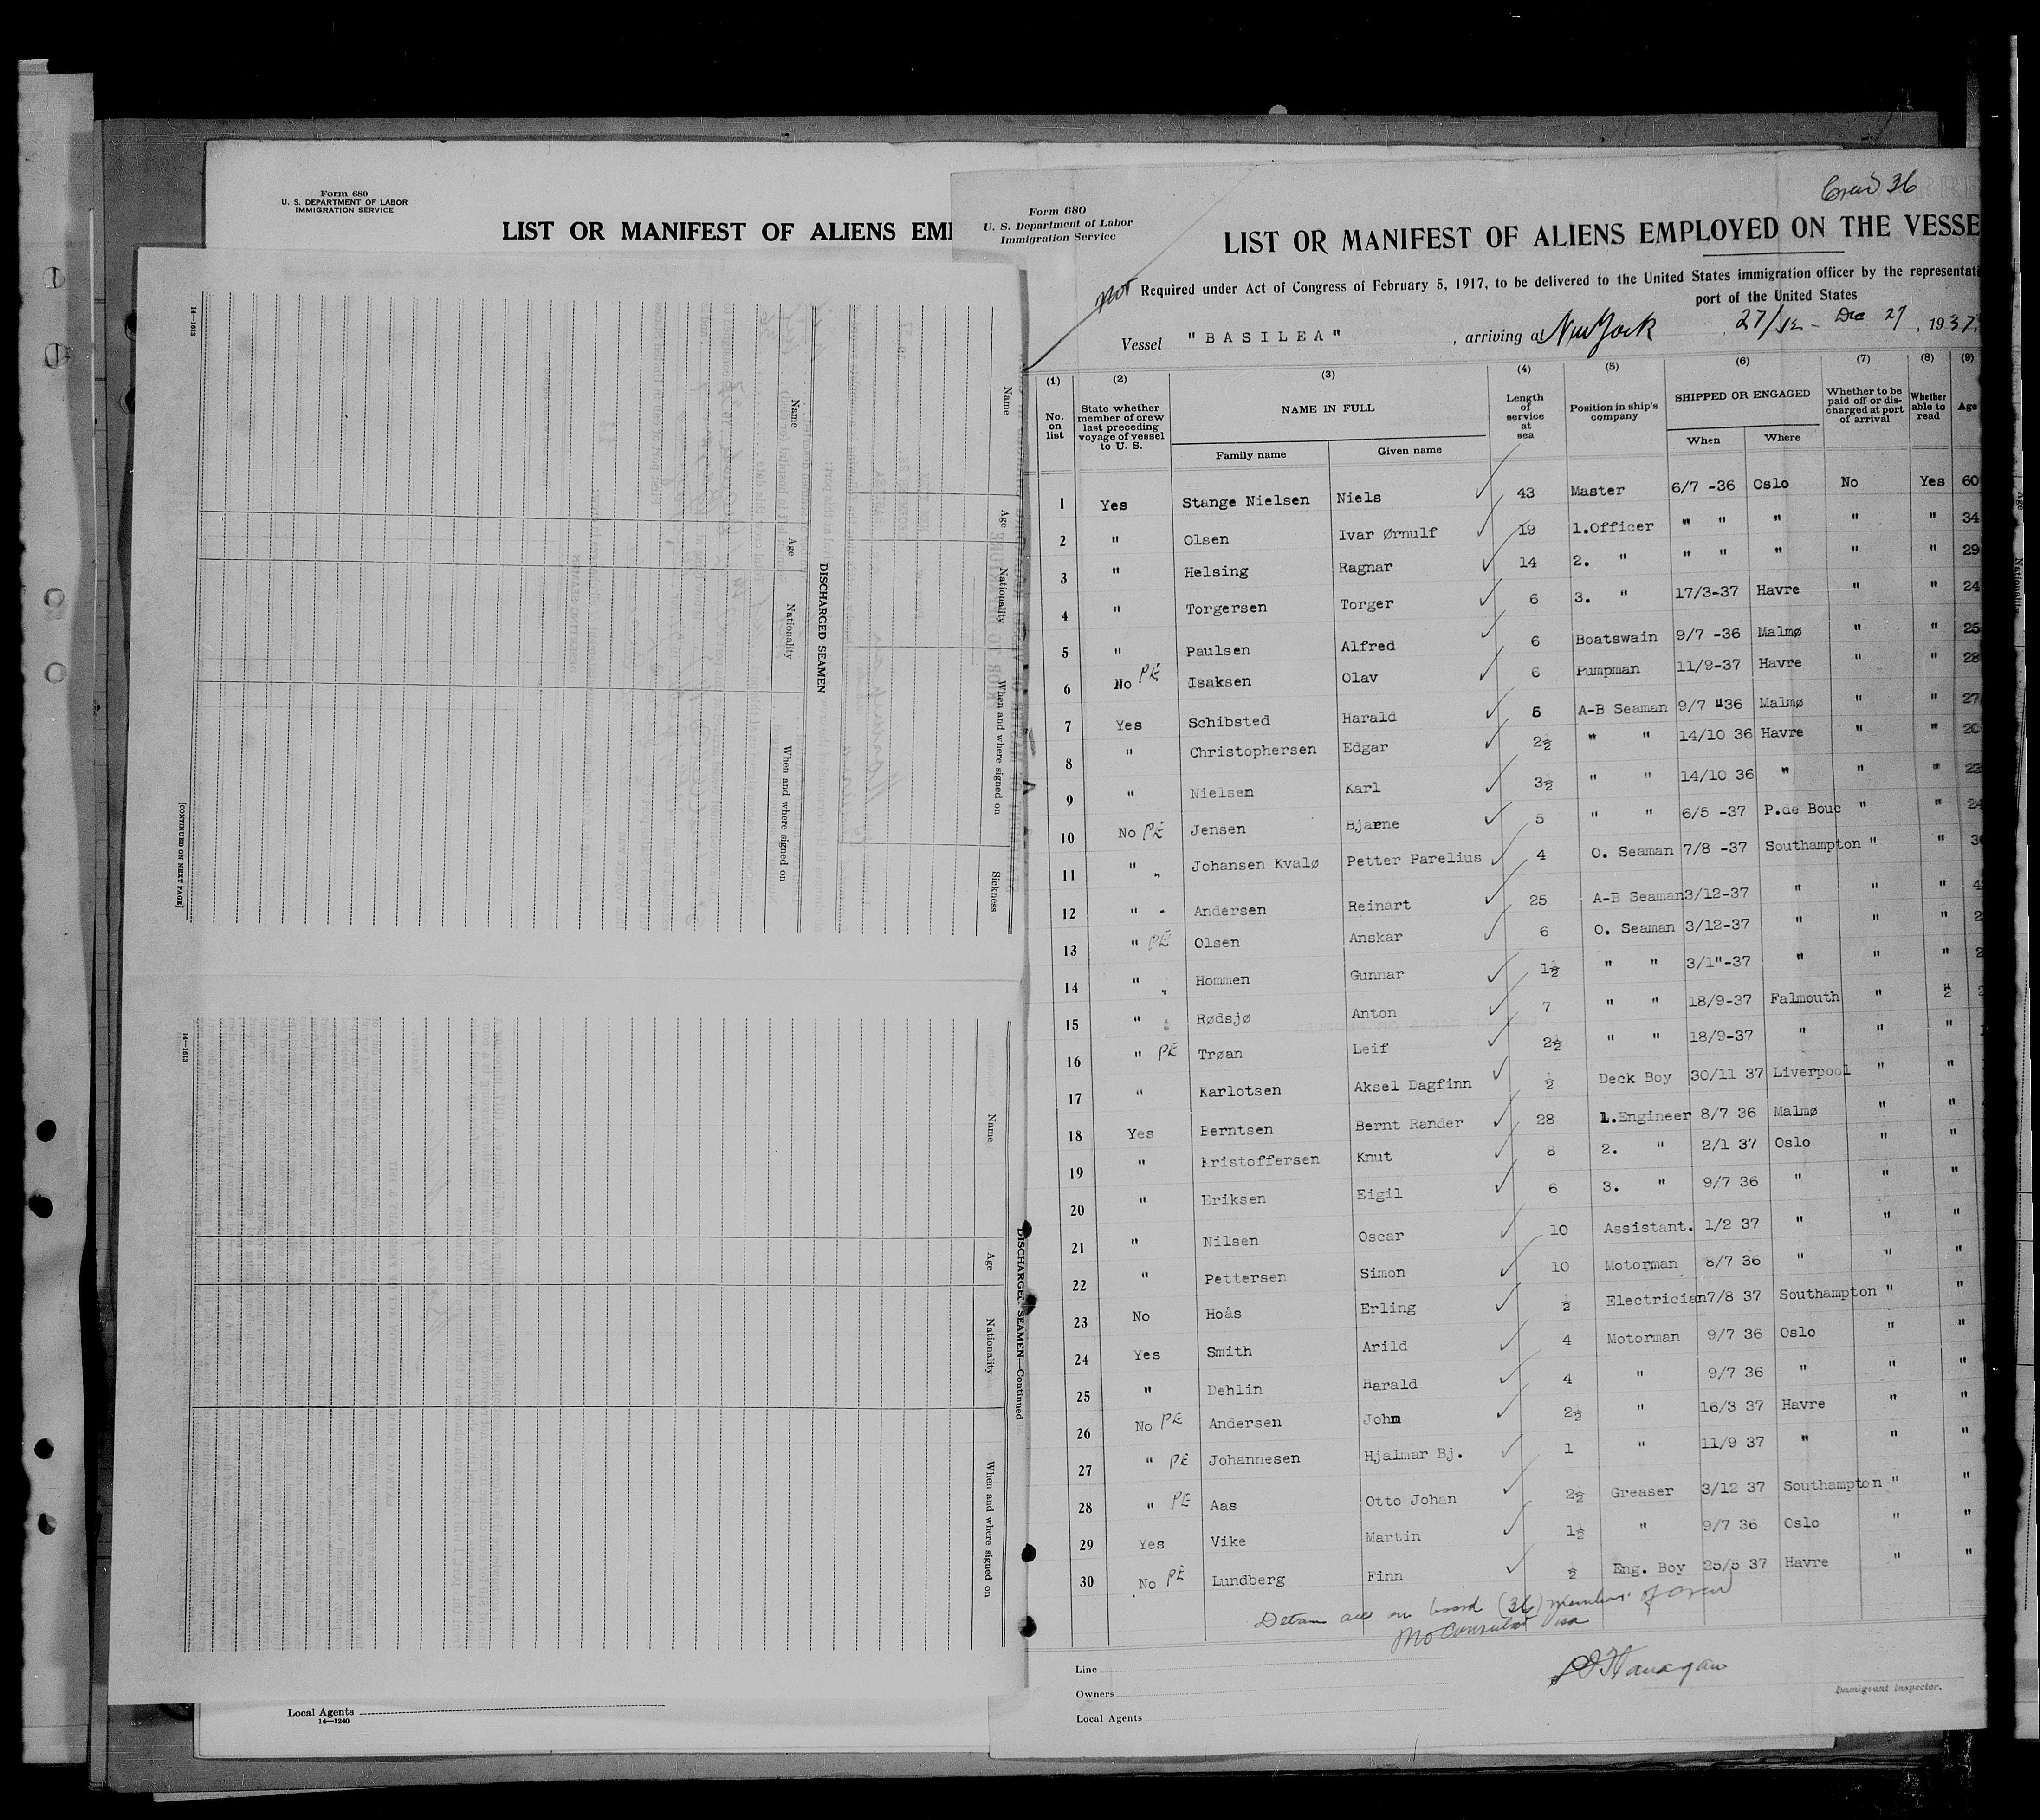 Form 680
U. S. DEPARTMENT OF LABOR
IMMIGRATION SERVICE
LIST OR MANIFEST OF ALIENS EM
14—1613
Name
Age
Nationality
When and where signed on
Sickness
DISCHARGED SEAMEN
Name
Age
Nationality
When and where signed on
[CONTINUED ON NEXT PAGE]
14—1613
DISCHARGED SEAMEN—Continued
Name
Age
Nationality
When and where signed on
Local Agents
14—1240
Crew 36
Form 680
U. S. Department of Labor
Immigration Service
LIST OR MANIFEST OF ALIENS EMPLOYED ON THE VESSE
Required under Act of Congress of February 5, 1917, to be delivered to the United States immigration officer by the representati
port of the United States
Vessel "BASILEA", arriving at New York 27/12 - Dec 27, 1937
(1) (2) (3) (4) (5) (6) (7) (8) (9)
No. on list
State whether member of crew last preceding voyage of vessel to U. S.
NAME IN FULL
Family name Given name
Length of service at sea
Position in ship's company
SHIPPED OR ENGAGED
When Where
Whether to be paid off or discharged at port of arrival
Whether able to read
Age
1 Yes Stange Nielsen Niels 43 Master 6/7 -36 Oslo No Yes 60
2 " Olsen Ivar Ørnulf 19 1.Officer " " " " " 34
3 " Helsing Ragnar 14 2. " " " " " " 29
4 " Torgersen Torger 6 3. " 17/3-37 Havre " " 24
5 " Paulsen Alfred 6 Boatswain 9/7 -36 Malmø " " 25
6 No PE Isaksen Olav 6 Pumpman 11/9-37 Havre " " 28
7 Yes Schibsted Harald 5 A-B Seaman 9/7 "36 Malmø " " 27
8 " Christophersen Edgar 2½ " " 14/10 36 Havre " " 20
9 " Nielsen Karl 3½ " " 14/10 36 " " " 23
10 No PE Jensen Bjarne 5 " " 6/5 -37 P.de Bouc " " 24
11 " " Johansen Kvalø Petter Parelius 4 O. Seaman 7/8 -37 Southampton " " 3
12 " " Andersen Reinart 25 A-B Seaman 3/12-37 " " " 4
13 " PE Olsen Anskar 6 O. Seaman 3/12-37 " " " 2
14 " " Hommen Gunnar 1½ " " 3/1"-37 " " " 2
15 " " Rødsjø Anton 7 " " 18/9-37 Falmouth " " 2
16 " PE Trøan Leif 2½ " " 18/9-37 " " "
17 " Karlotsen Aksel Dagfinn ½ Deck Boy 30/11 37 Liverpool " "
18 Yes Berntsen Bernt Rander 28 1.Engineer 8/7 36 Malmø " "
19 " Kristoffersen Knut 8 2. " 2/1 37 Oslo " "
20 " Eriksen Eigil 6 3. " 9/7 36 " " "
21 " Nilsen Oscar 10 Assistant. 1/2 37 " " "
22 " Pettersen Simon 10 Motorman 8/7 36 " " "
23 No Hoås Erling ½ Electrician 7/8 37 Southampton " "
24 Yes Smith Arild 4 Motorman 9/7 36 Oslo " "
25 " Dehlin Harald 4 " 9/7 36 " " "
26 No PE Andersen John 2½ " 16/3 37 Havre " "
27 " PE Johannesen Hjalmar Bj. 1 " 11/9 37 " " "
28 " PE Aas Otto Johan 2½ Greaser 3/12 37 Southampton " "
29 Yes Vike Martin 1½ " 9/7 36 Oslo " "
30 No PE Lundberg Finn ½ Eng. Boy 25/5 37 Havre " "
Detain all on board (36) members of crew
No Consular Visa
Line
Owners
Local Agents
Immigrant Inspector.